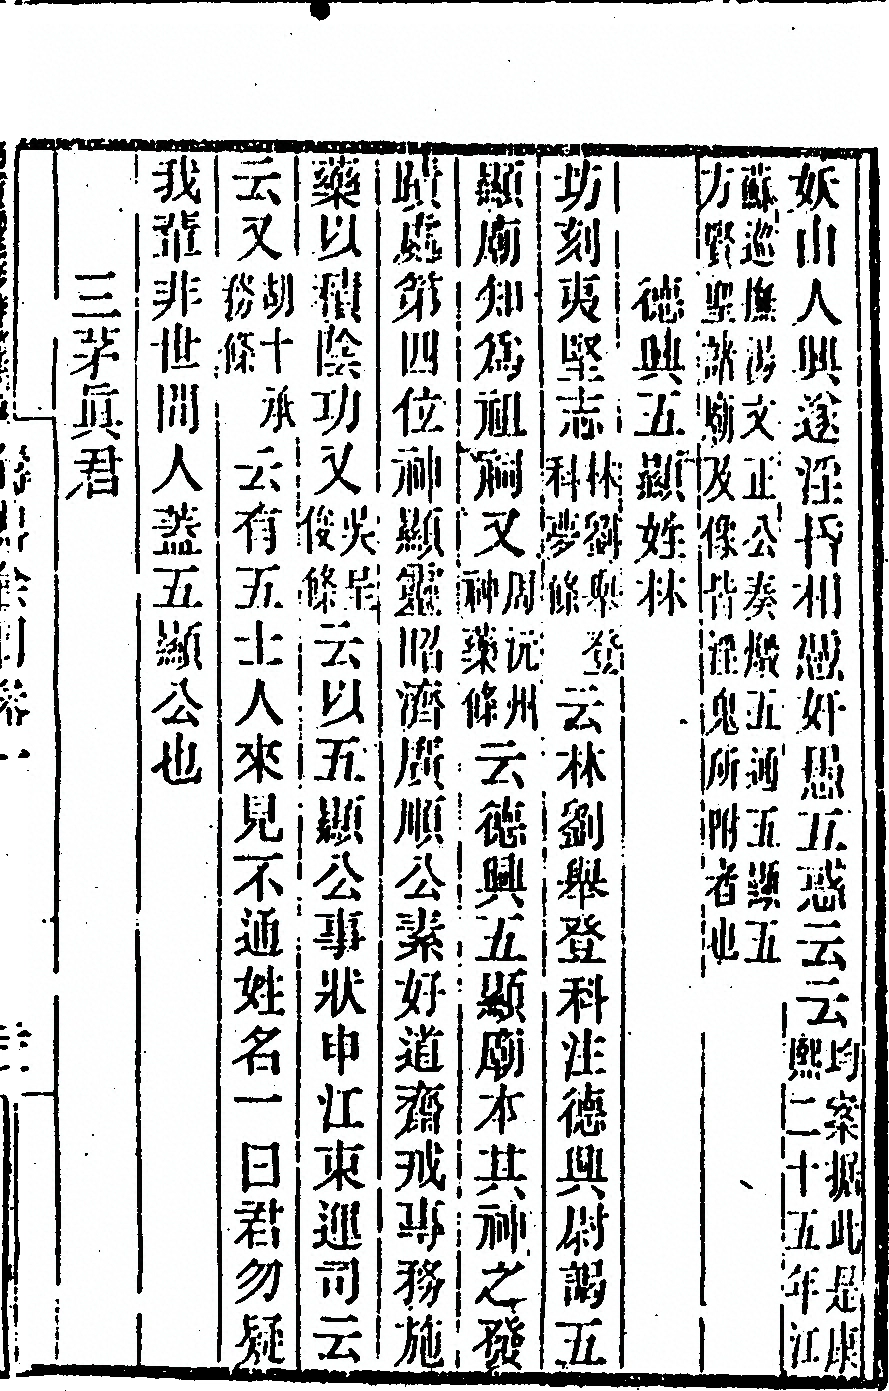 妖由人興遂淫昏相愚奸愚五惑云云均案据此是康熙二十五年江
蘇巡撫湯文正公奏燬五通五顯五方賢聖諸廟及像皆淫鬼所附者也
德興五顯姓林
坊刻夷堅志林劉舉登科夢條云林劉舉登科注德興尉謁五
顯廟知為祖祠又周沅州神藥條云德興五顯廟本其神之發
蹟處第四位神顯靈昭濟廣順公素好道齋戒專務施
藥以積陰功又吳呈俊條云以五顯公事狀申江東運司云
云又胡十承務條云有五士人來見不通姓名一曰君勿疑
我輩非世間人蓋五顯公也
三茅眞君